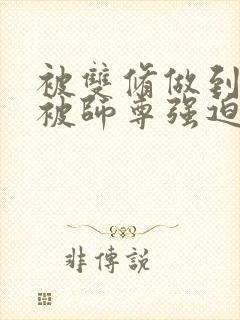 被雙脩做到
被師尊强迫
非傳説